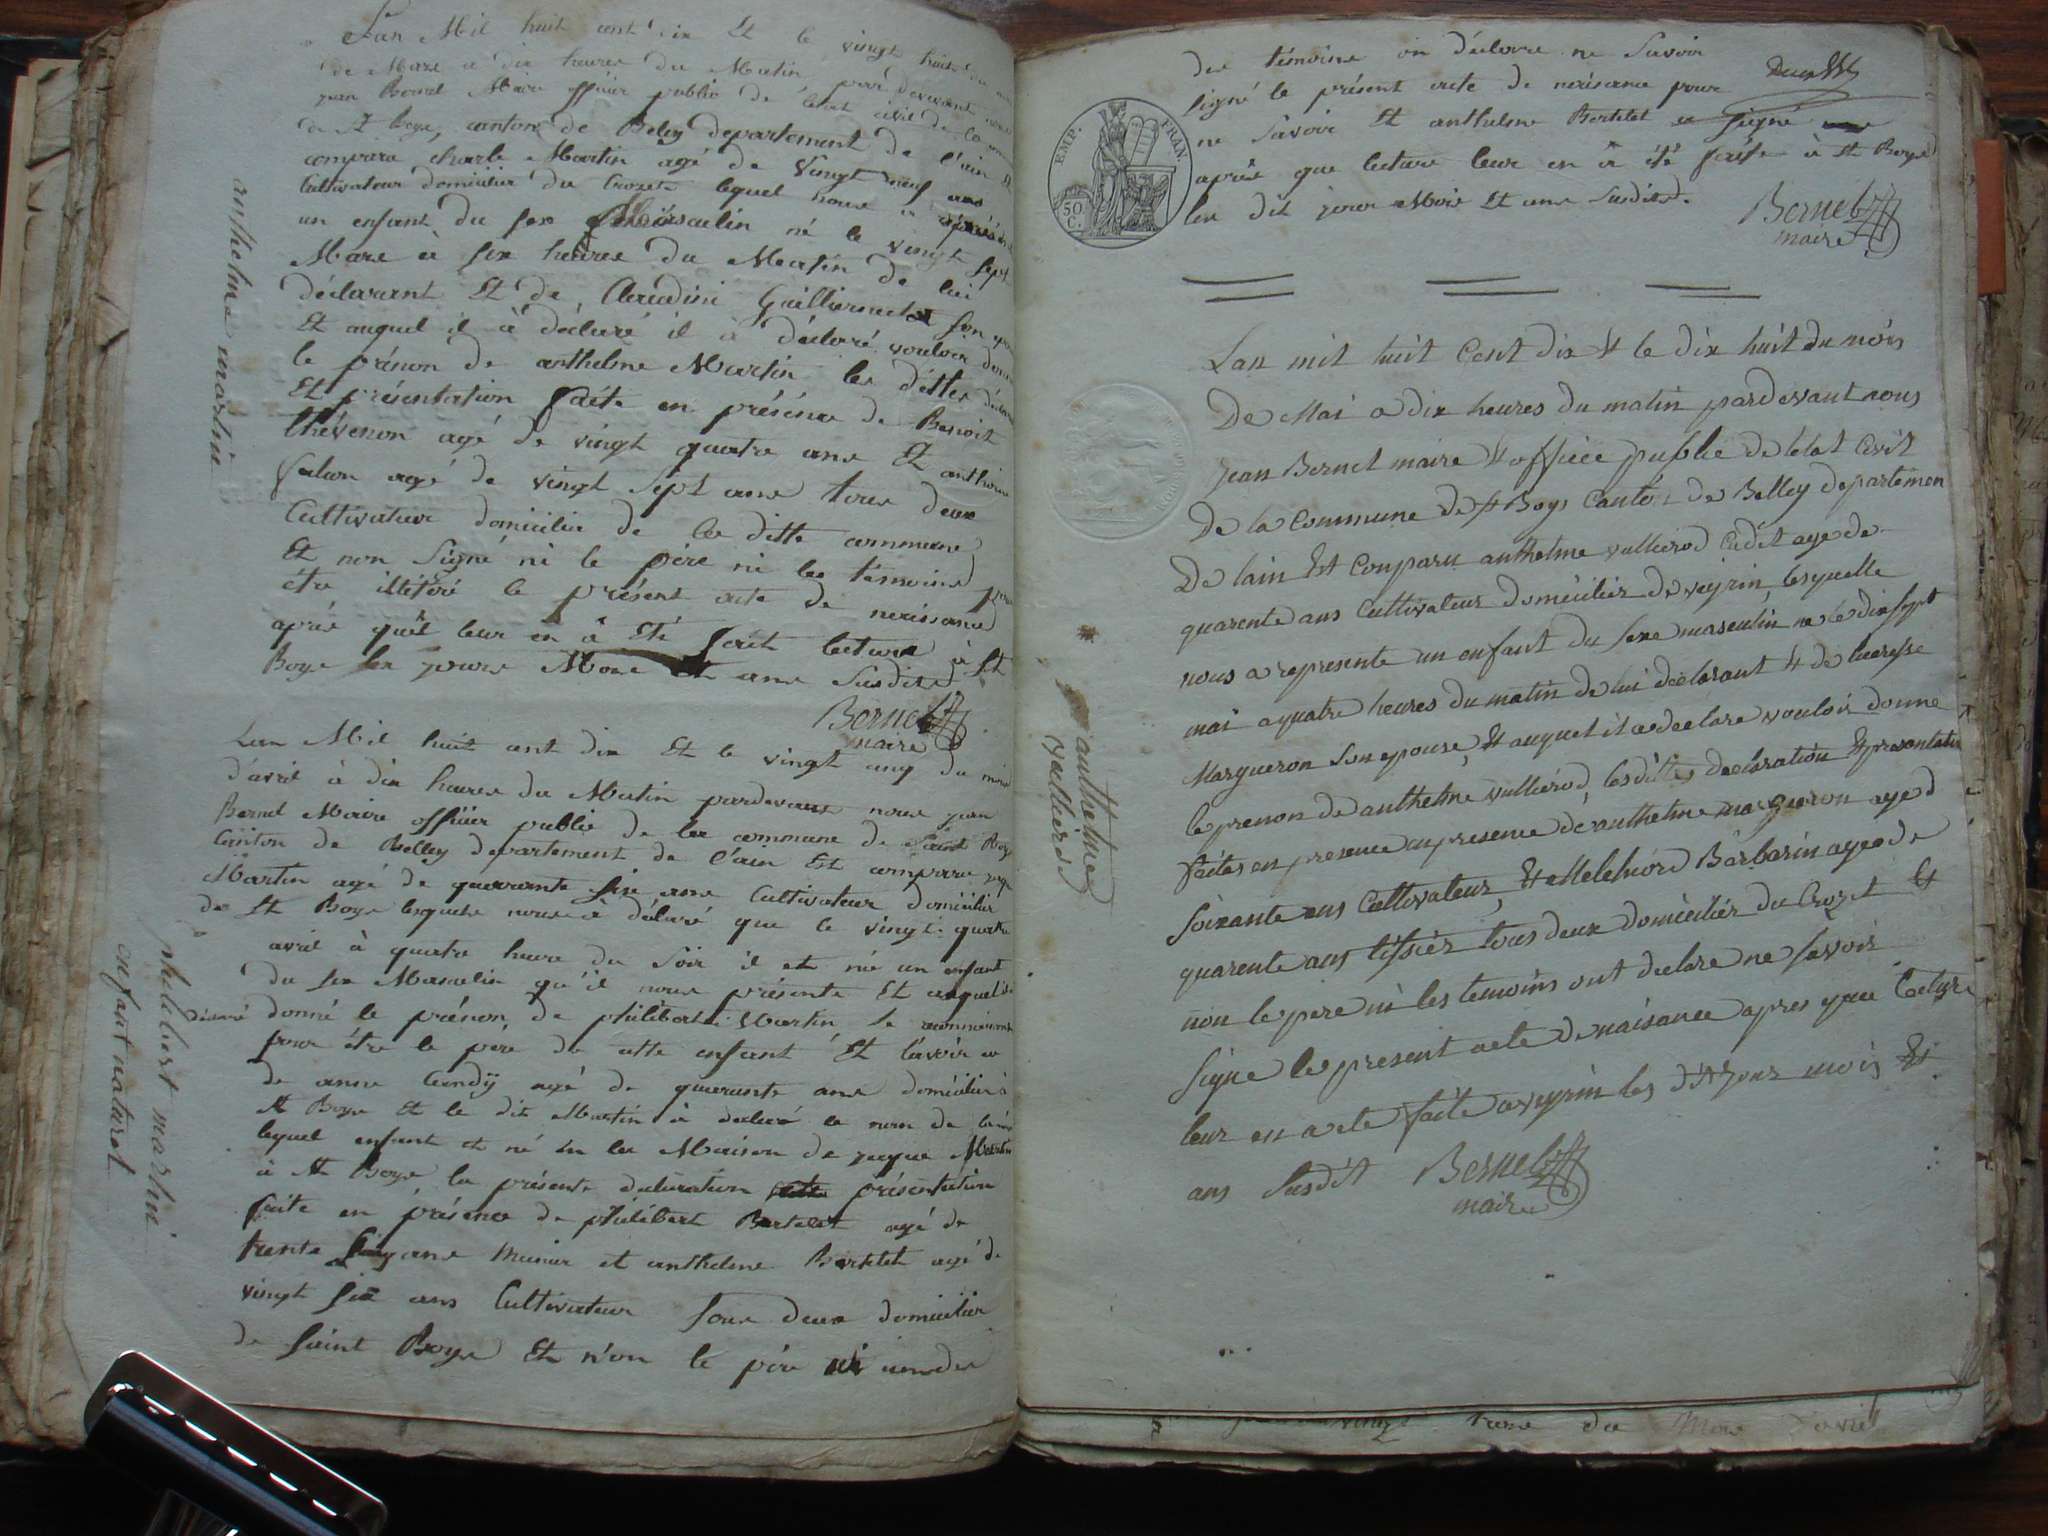 Lan Mil huit cent dix Et le vingt huit du
de Mars a dix heures du Matin pardevant
jean Bernel Maire officier public de letat civil de la
de St Boys, canton de Beley departement de l'ain Et
comparu charle Martin agé de vingt neuf ans
Cultivateur domicilier du Crozet lequel nous a
un enfant du sex Masculin né le vingt sept
Mars à six heures du Matin de lui
déclarant Et de Claudine son
Et auquel il à déclaré il à déclaré vouloir donne
le prénon de anthelme Martin les dittes
Et présentation faite en présénce de Benoit
thévenon agé de vingt quatre ans Et anthoine
agé de vingt sept ans tous deux
Cultivateur domicilier de la ditte commune
Et non signé ni le père ni les témoins pour
étre illitéré le présent acte de naissance
aprés quét leur en à Eté fait lecture à St
Boys les jours Mois Et ans Susdits
Bernel
maire
anthelme martin
Lan Mil huit cent dix Et le vingt cinq du mois
d'avril à dix heures du Matin pardevant nous jean
Bernel Maire officier public de la commune de Saint Boys
Canton de Belley departement de l'ain Est comparu
Martin agé de quarante six ans Cultivateur domicilier
de St Boys lequels nous à déclaré que le vingt quatre
avril à quatre heure du Soir il et né un enfant
du sex Masculin qu'il nous présente Et auquel il
déclaré donné le prénon de philibert Martin, Se
pour étre le pere de cette enfant Et l'avoir eu
de anne agé de quarante ans domicilié à
St Boys Et le dit Martin à declaré
lequel enfant et né en la Maison de Martin
à St Boys la présente declaration présentation
faite en présence de philibert Bertelet agé de
trente cinq ans et anthelme Bertelet agé de
vingt six ans Cultivateur tous deux domicilier
de Saint Boys Et n'on le pére ni
philibert martin
enfant naturel
des témoins on déclare ne Savoir
signé le présent acte de naisance pour
ne Savoir Et anthelme Bertelet a signé
aprés que lecture leur en à été faite à St Boys
les dit jour Mois Et ans Susdits.
Bernel
maire
EMP. FRAN.
50 C.
Lan mil huit Cent dix et le dix huit du mois
De Mai a dix heures du matin pardevant nous
jean Bernel maire et officie publie de letat Civil
De la Commune de St Boys Canton de Belley departemen
De lain Est Comparu anthelme vullierod Cadet age de
quarente ans Cultivateur domecilier de veyrin, lesquelle
nous a represente un enfant du sexe masculin ne le dix sept
mai a quatre heures du matin de lui declarant et de lucresse
Margueron Son epouse, Et auquel il a declare vouloir donne
le prenon de anthelme vullierod, lesdittes declaration Et presentation
faites en presence en presence de anthelme margueron age d
soixante ans Cultivateur, Et Melchiord Barbarin age de
quarente ans tissier tous deux domicilier du Crozet Et
non le pere ni les temoins ont declare ne savoir
signe le present acte de naisance apres que Lecture
leur en a ete faite a veyrin les dit jour mois Et
ans susdit
Bernel
maire
anthelme
vullierod
vingt du Mois d'avril